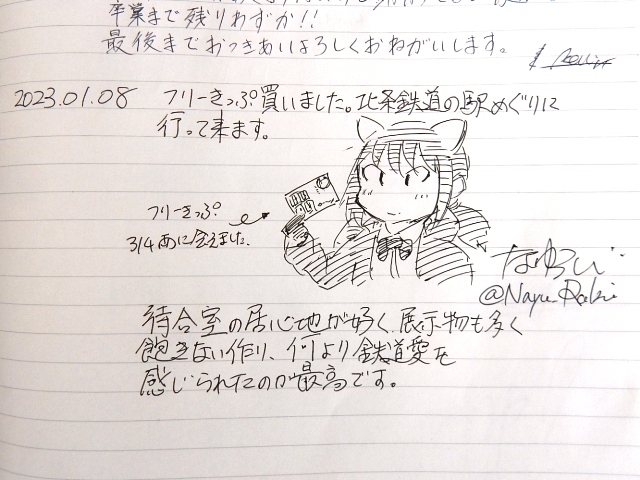 卒業まで残りわずか!!
最後までおつきあいよろしくおねがいします。
2023.01.08 フリーきっぷ買いました。北条鉄道の駅めぐりに
行って来ます。
フリーきっぷ
3/4 めに会えました。
@Nayu
待合室の居心地が好く、展示物も多く
飽きない作り、何より鉄道愛を
感じられたのが最高です。